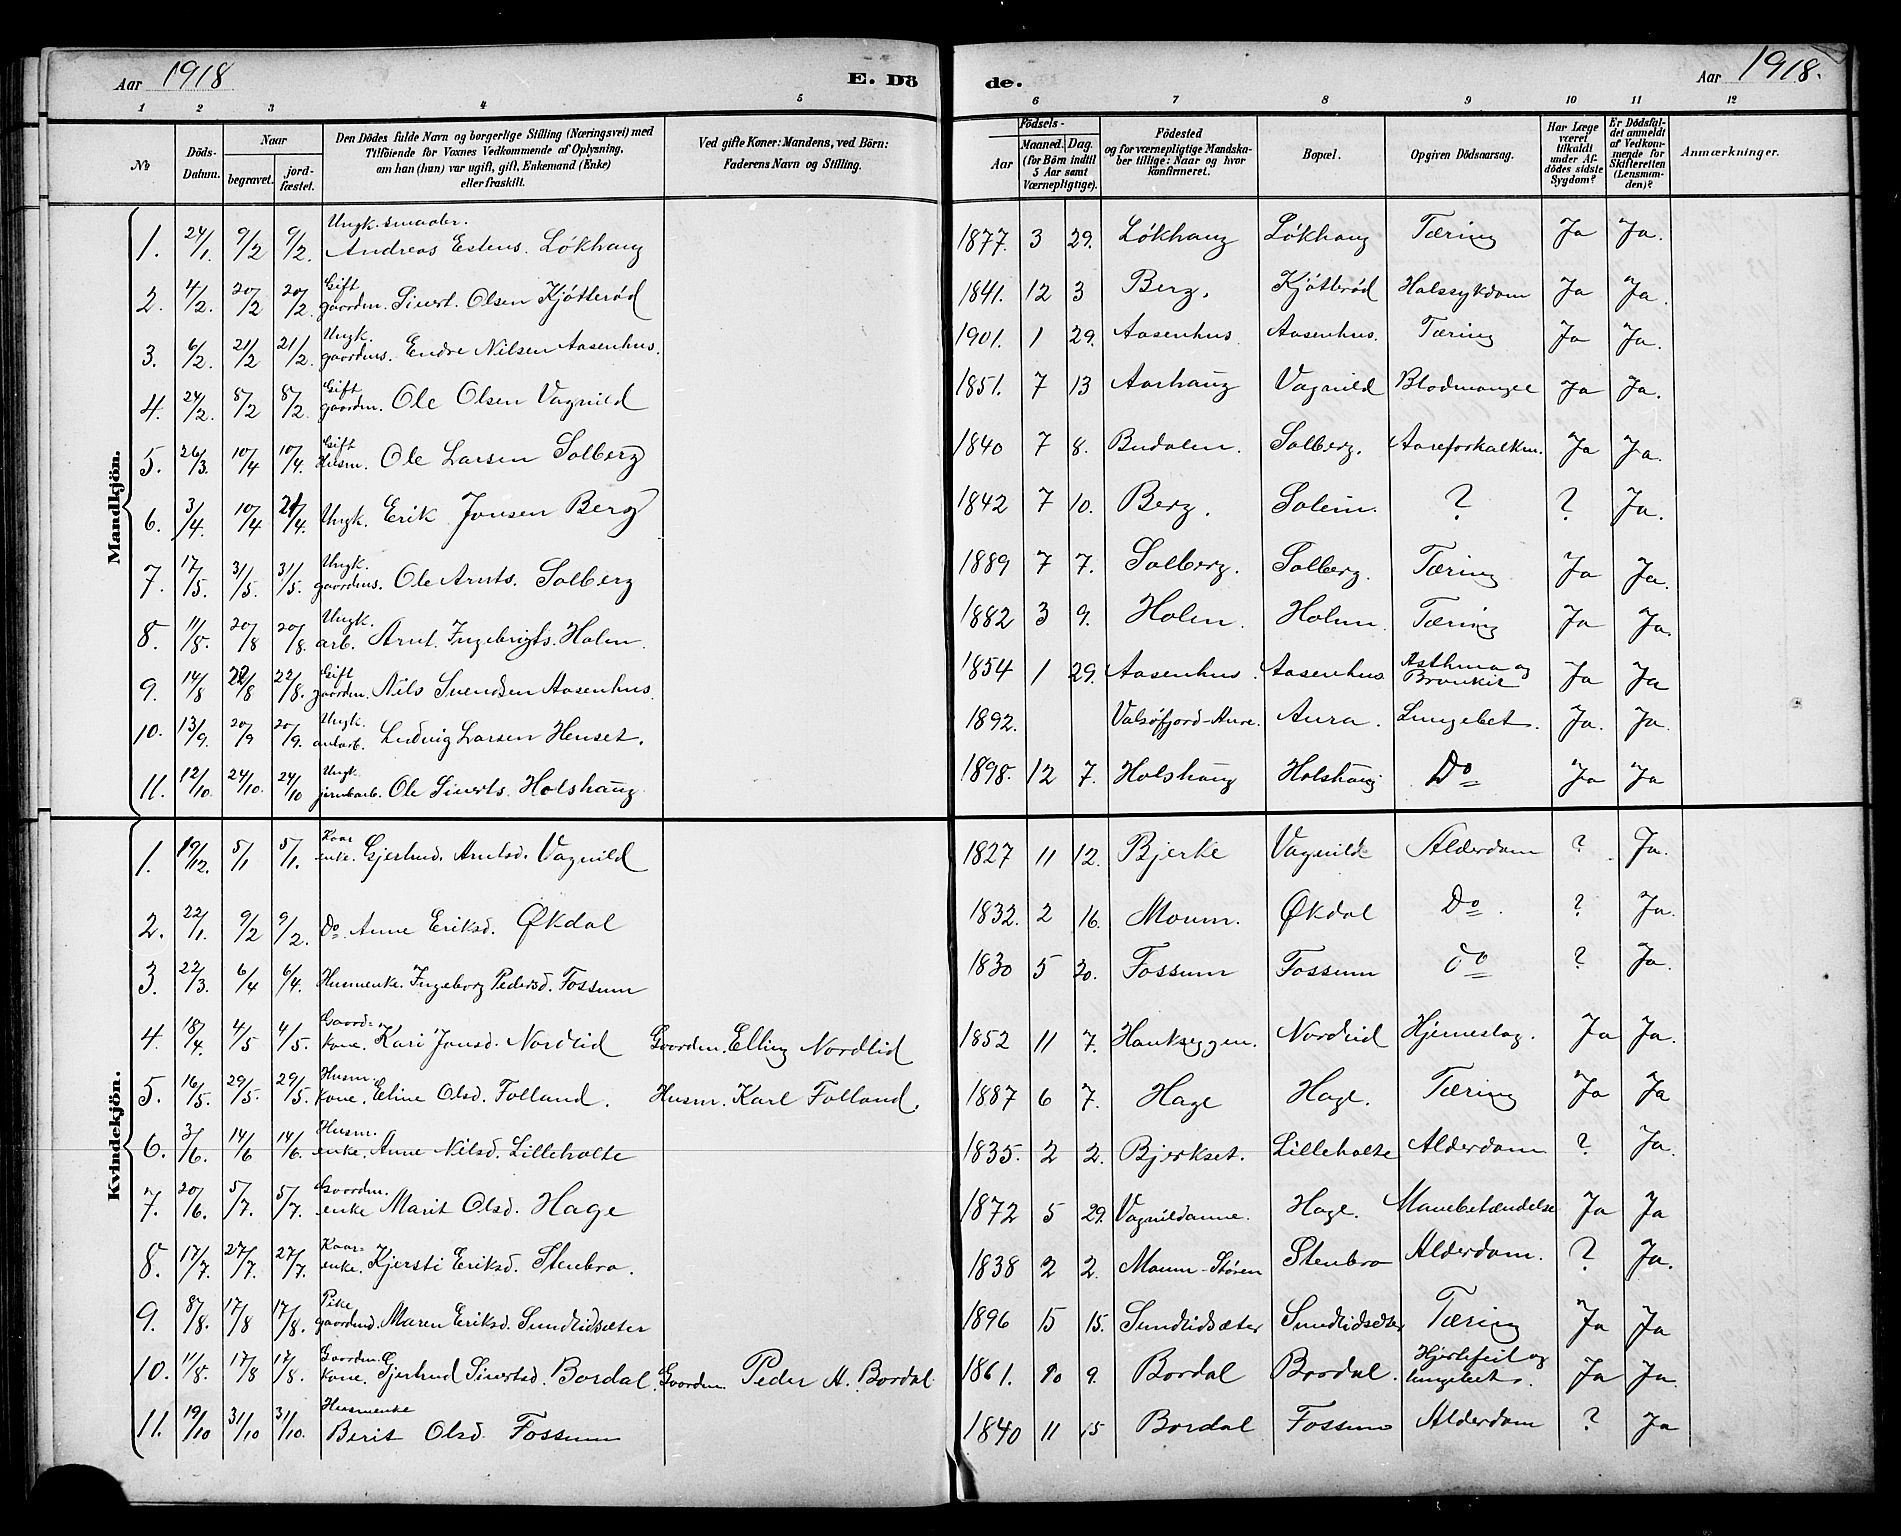 Aar 1918 E. Dö de. Aar 1918.
1 2 3 4 5 6 7 8 9 10 11 12
No
Döds-Datum.
Naar
begravet.
jord-fæstet.
Den Dödes fulde Navn og borgerlige Stilling (Næringsvei) med
Tilföiende for Voxnes Vedkommende af Oplysning,
om han (hun) var ugift, gift, Enkemand (Enke)
eller fraskilt.
Ved gifte Koner: Mandens, ved Börn:
Faderens Navn og Stilling.
Födsels-
Aar
Maaned. Dag.
(for Börn indtil
5 Aar samt
Værnepligtige).
Födested
og for værnepligtige Mandska-
ber tillige: Naar og hvor
konfirmeret.
Bopæl.
Opgiven Dödsaarsag.
Har Læge
været
tilkaldt
under Af-
dödes sidste
Sygdom?
Er Dödsfal-
det anmeldt
af Vedkom-
mende for
Skifteretten
(Lensman-
den)?
Anmærkninger.
Mandkjön.
1. 24/1. 9/2 9/2. Ungk. smaabr. Andreas Estens. Løkhaug 1877. 3 29. Løkhaug Løkhaug Tæring Ja Ja.
2. 4/2. 20/2 20/2. Gift gaardm. Sivert Olsen Kjøtterød 1841. 12 3 Berg. Kjøtterød Halssykdom Ja Ja.
3. 6/2. 21/2 21/2. Ungk. gaardms. Endre Nilsen Aasenhus. 1901. 1 29. Aasenhus. Aasenhus. Tæring Ja Ja.
4. 24/2. 8/2 8/2. Gift gaardm. Ole Olsen Vagnild 1851. 7 13 Aarhaug Vagnild Blodmangel Ja Ja.
5. 26/3. 10/4 10/4. Gift Husm. Ole Larsen Solberg 1840 7 8. Budalen. Solberg. Aareforkalkn. Ja Ja.
6. 3/4. 10/4 21/4. Ungk. Erik Jonsen Berg 1842 7 10. Berg. Solem. ? ? Ja.
7. 17/5. 31/5. 31/5. Ungk. gaardms. Ole Arnts. Solberg 1889 7 7. Solberg. Solberg. Tæring Ja Ja.
8. 11/8. 20/8 20/8. Ungk. arb. Arnt Ingebrigts. Holm. 1882 3 9. Holm. Holm. Tæring Ja Ja.
9. 14/8 22/8 22/8. Gift gaardm. Nils Svendsen Aasenhus. 1854 1 29. Aasenhus. Aasenhus Asthma og Bronkit Ja Ja
10. 13/9. 20/9 20/9. Ungk. anlarb. Ludvig Larsen Henset. 1892. Valsøfjord-Aure. Aura. Lungebet. Ja. Ja.
11. 12/10. 24/10. 24/10 Ungk. jernbarb. Ole Siverts. Holshaug 1898. 12 7. Holshaug Holshaug Do Ja Ja
Kvindekjön.
1. 19/12. 5/1 5/1. Kaar enke. Gjertrud Arntsd. Vagnild 1827 11 12. Bjerke Vagnild Alderdom ? Ja.
2. 22/1. 9/2 9/2. Do. Anne Eriksd. Økdal 1832. 2 16. Moum. Økdal Do. ? Ja.
3. 22/3. 6/4 6/4. Husmenke. Ingeborg Pedersd. Fossum 1830 5 20. Fossum Fossum do ? Ja.
4. 18/4. 4/5 4/5. Gaard= kone. Kari Jonsd. Nordlid Gaardm. Elling Nordlid 1852 11 7. Haukseggen. Nordlid Hjerneslag. Ja Ja.
5. 16/5. 29/5. 29/5. Husm. kone. Eline Olsd. Folland. Husm. Karl Folland. 1887 6 7. Hage Hage. Tæring Ja Ja
6. 3/6. 14/6 14/6. Husm. enke. Anne Nilsd. Lilleholte 1835. 2 2. Bjerkset. Lilleholte Alderdom ? Ja.
7. 20/6. 5/7. 5/7. Gaardm. enke Marit Olsd. Hage 1872 5 29. Vagnildanne. Hage. Mavebetændelse Ja Ja
8. 17/7. 27/7. 27/7. Kaar= enke. Kjersti Eriksd. Stenbro. 1838 2 2. Moum-Støren Stenbro Alderdom. ? Ja.
9. 8/8. 17/8 17/8. Pike gaardmd. Maren Eriksd. Sundlidsæter 1896 5 15. Sundlidsæter Sundlidsæter Tæring Ja Ja
10. 11/8. 17/8 17/8. Gaardm. kone. Gjertrud Sivertsd. Bordal. Gaardm. Peder A. Bordal 1861. 10 9. Bordal Bordal. Hjertefeil og lungebet. Ja Ja.
11. 19/10 31/10 31/10. Husmenke Berit Olsd. Fossum 1840 11 15 Bordal Fossum Alderdom ? Ja